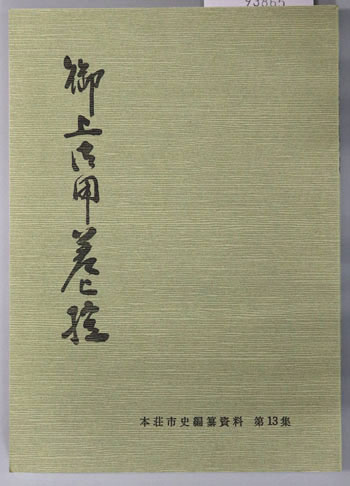 御上御用差上控
本荘市史編纂資料 第13集